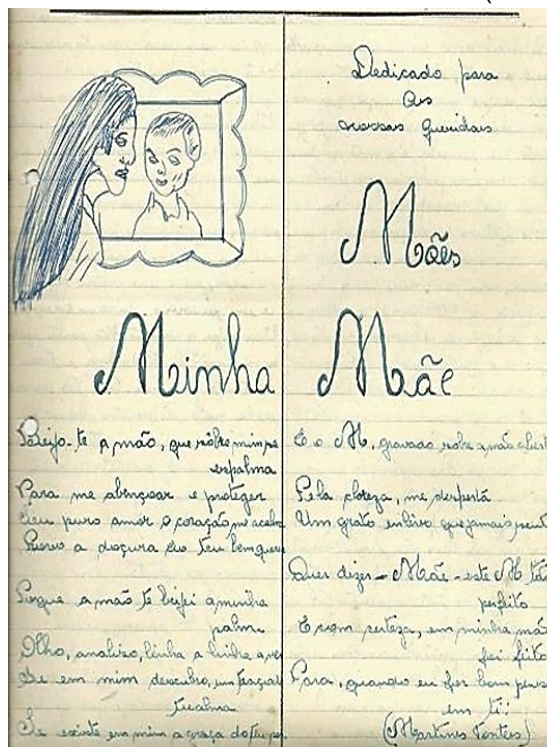 Dedicado para
as
nossas queridas
Mães
Minha Mãe
Beijo-te a mão, que sôbre mim se
espalma
Para me abençoar e proteger
Teu puro amor o coração me acalma
Provo a doçura do teu bem querer
Porque a mão te beijei a minha
palma
Olho, analiso, linha a linha a ver
Se em mim descubro, um traço de
tu'alma
Se existe em mim a graça do teu ser
E o M, gravado sobre a mão aberta
Pela clareza, me desperta
Um grato enlêvo que jamais senti
Quer dizer - Mãe - este M tão
perfeito
E com certeza, em minha mão
foi feito
Para, quando eu for bom pensar
em ti!
(Martins Fontes)